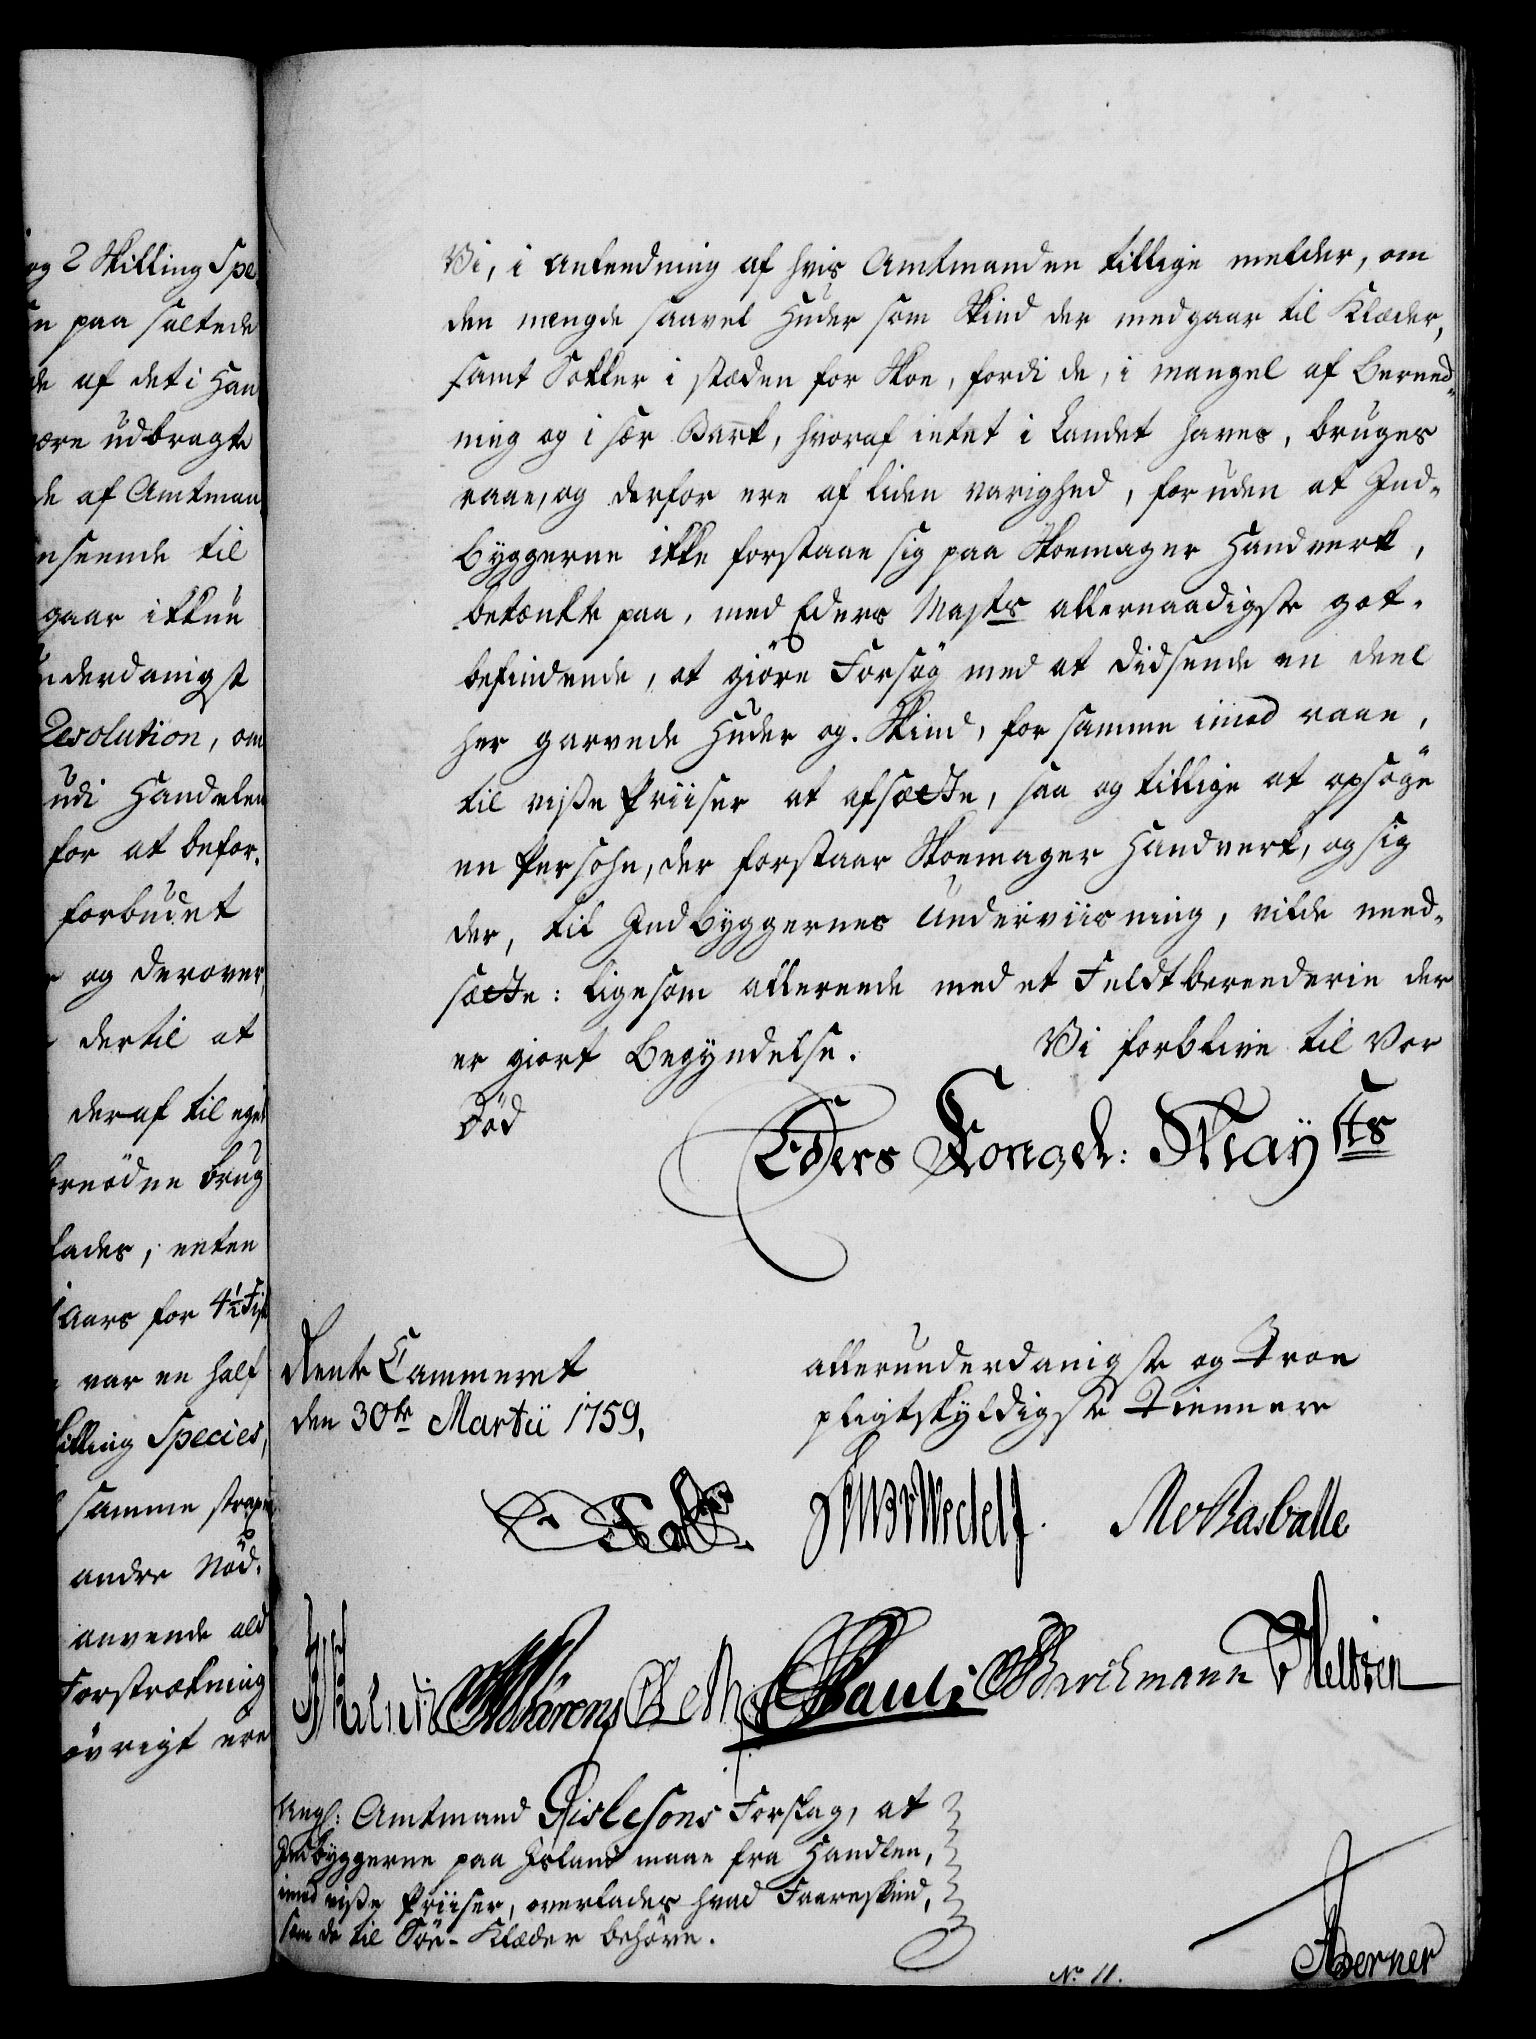 og 2 Skilling Spe¬
paa saltede
af det i Han
være udbragte
de af Amtman
nseende til
gaar ikkun
nderdanigst
Resolution, om
udi Handelen
for at befor¬
forbudet
og derover
dertil at
deraf til eget
fornödne brug
lades, enten
Aars for 4 1/2
var en half
killing Species,
samme strax
andre Nöd¬
anvende ald
Forstrækning
övrigt ere
Vi, i anledning af hvis Amtmanden tillige melder, om
den mængde saavel Huder som Skind der medgaar til Klæder,
samt Sokker i stæden for Skoe, fordi de, i mangel af Bereed¬
ning og i sær Bark, hvoraf intet i Landet haves, bruges
raae, og derfor ere af liden varighed, foruden at Ind¬
byggerne ikke forstaae sig paa Skoemager Handverk,
betænkte paa, med Eders Majts allernaadigste got¬
befindende, at giöre Forsög med at didsende en deel
her garvede Huder og Skind, for samme imod raae,
til visse Priiser at afsætte, saa og tillige at opsöge
en Persohn, der forstaar Skoemager Handverk, og sig
der, til Indbyggernes Underviisning, vilde need¬
sætte: ligesom allereede med et Feldtberederie der
er giort Begyndelse. Vi forblive til Vor
Död
Eders Kongel: Mayts
Rente Cammeret
den 30te Martii 1759.
allerunderdanigste og Troe
pligtskyldigste Tiennere
Wedel
Rasballe
Pauli Barchmann Neltzen
Ang: Amtmand Gislesons Forslag, at
Indbyggerne paa Island maae fra Handlen,
imod visse Priiser, overlades hvad Faareskind,
som de til Söe-Klæder behöve.
No 11.
Berner